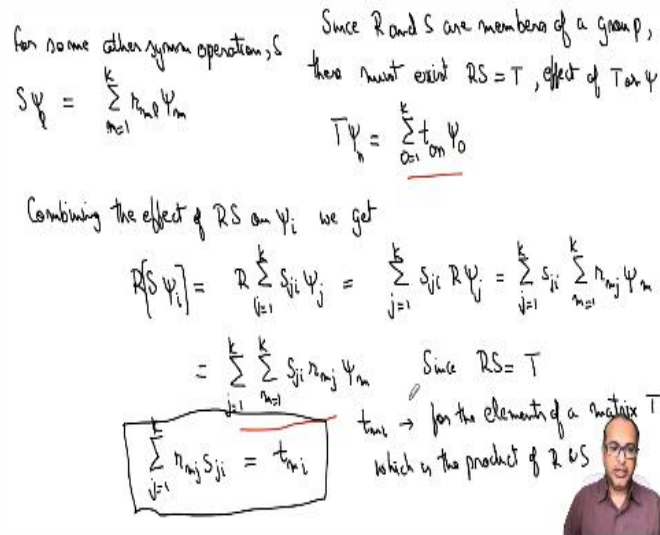 For some other symm operation, S
Sψ_l = Σ_{m=1}^{k} r_{ml} ψ_m
Since R and S are members of a group,
there must exist RS = T, effect of T on ψ
Tψ_n = Σ_{o=1}^{k} t_{on} ψ_o
Combining the effect of RS on ψ_i we get
R[Sψ_i] = R Σ_{j=1}^{k} s_{ji} ψ_j = Σ_{j=1}^{k} s_{ji} Rψ_j = Σ_{j=1}^{k} s_{ji} Σ_{m=1}^{k} r_{mj} ψ_m
= Σ_{j=1}^{k} Σ_{m=1}^{k} s_{ji} r_{mj} ψ_m
Since RS = T
Σ_{j=1}^{k} r_{mj} s_{ji} = t_{mi}
t_{mi} → for the elements of a matrix T
which is the product of R & S